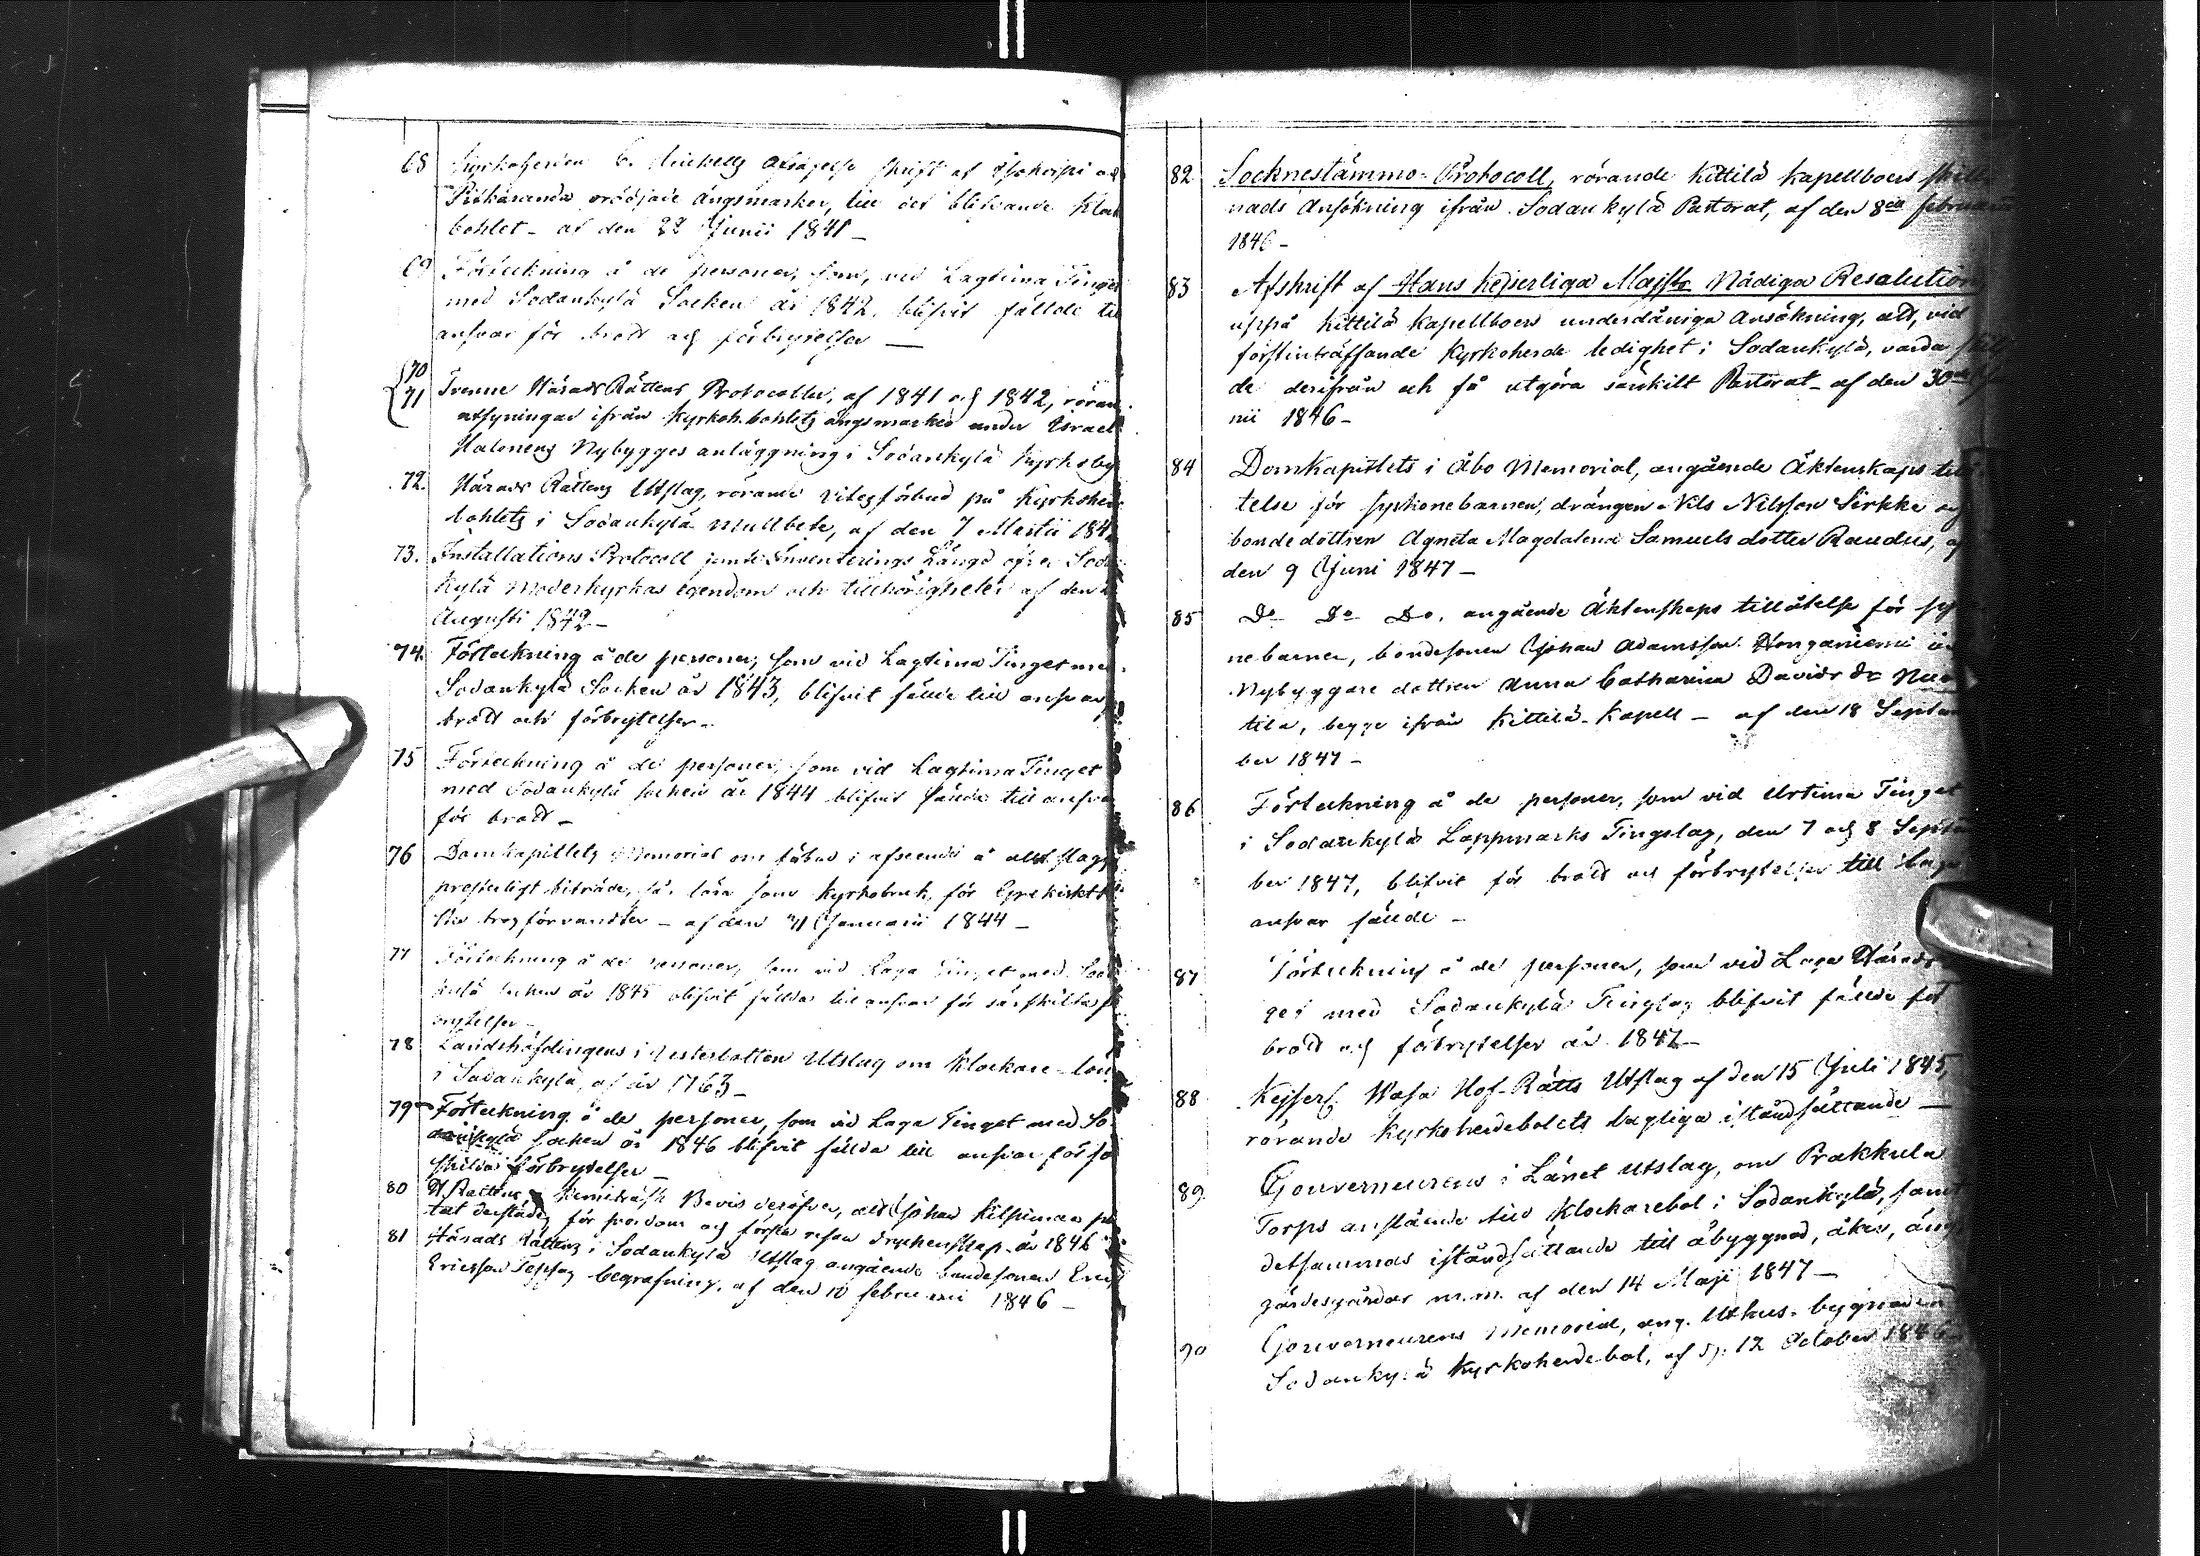 68 Kyrkoherden C. Michells afsägelse skrift af
Pitkäranda oröjde ängsmarker, till det blifvande Klock
bohlet - af den 22 Junii 1841 -
69 Förteckning å de personer, som, vid Lagtima Tinget
med Sodankylä Socken år 1842, blifvit fällde till
ansvar för brott och förbrytelser —
70
71 Trenne Härads Rättens Protocoller, af 1841 och 1842, röran
afsyningar ifrån Kyrkoh.bohlets ängsmarker under Israel
Halonens Nybygges anläggning i Sodankylä Kyrkoby
72. Härads Rättens Utslag, rörande vitesförbud på Kyrkoher
bohlets i Sodankylä mullbete, af den 7 Martii 184
73. Installations Protocoll jemte Inventerings Längd öfver Sod
kylä Moderkyrkas egendom och tillhörigheter af den
Augusti 1842 -
74. Förteckning å de personer, som vid Lagtima Tinget me
Sodankylä Socken år 1843, blifvit fällde till ansvar
brott och förbrytelser -
75 Förteckning å de personer, som vid Lagtima Tinget
med Sodankylä Socken år 1844 blifvit fällde till ansva
för brott -
76 Domkapitlets Memorial om förbud i afseende å allt slags
presterligt biträde, så lära som kyrkobruk, för Grekiskt
ska trosförvandter - af den 31 Januarii 1844 -
77 Förteckning å de personer, som vid Laga Tinget med Sod
kylä Socken år 1845 blifvit fällda till ansvar för särskilta f
brytelser -
78 Landshöfdingens i Vesterbotten Utslag om Klockare-lön
i Sodankylä, af år 1763 -
79 Förteckning å de personer, som vid Laga Tinget med So
dankylä Socken år 1846 blifvit fällda till ansvar för sä
skilda förbrytelser -
80 H. Rättens i Kemiträsk Bevis deröfver, att Johan Kilpimaa
tat derstädes för svordom och första resan dryckenskap - år 1846
81 Härads Rättens i Sodankylä Utslag angående bondesonen Eric
Ericsson Toppas begrafning, af den 10 Februarii 1846 -
82 Socknestämmo-Protocoll, rörande Kittilä Kapellboers skill
nads Ansökning ifrån Sodankylä Pastorat, af den 8de Februarii
1846 -
83 Afskrift af Hans Kejserliga Majsts Nådiga Resolution
uppå Kittilä Kapellboers underdåniga Ansökning, att, vid
förstinträffande Kyrkoherde ledighet i Sodankylä, varda skil
de derifrån och få utgöra särskilt Pastorat - af den 30de Ju
nii 1846 -
84 Domkapitlets i Åbo Memorial, angående Äktenskaps till
telse för syskonebarnen, drängen Nils Nilsson Sirkka och
bondedottren Agneta Magdalena Samuelsdotter Raudus, af
den 9 Junii 1847 -
85 Do Do Do, angående Äktenskaps tillåtelse för sys
nebarnen, bondesonen Johan Adamsson Honganiemi
Nybyggare dottren Anna Catharina Davids Dr
tila, begge ifrån Kittilä Kapell - af den 18 Septem
ber 1847 -
86 Förteckning å de personer, som vid Urtima Tinget
i Sodankylä Lappmarks Tingslag, den 7 och 8 Septem
ber 1847, blifvit för brott och förbrytelser till laga
ansvar fällde -
87 Förteckning å de personer, som vid Laga Härads
get med Sodankylä Tingslag blifvit fällde för
brott och förbrytelser år 1847 -
88 Kejserl. Wasa Hof-Rätts Utslag af den 15 Juli 1845,
rörande Kyrkoherdebolets lagliga iståndsättande —
89 Gouverneurens i Länet Utslag, om Prakkula
Torps anslående till Klockarebol i Sodankylä, samt
detsammas iståndsättande till åbyggnad, åker, äng
gärdesgårdar m.m. af den 14 Maji 1847 -
90 Gouverneurens Memorial, ang. Uthus-bygnaden
Sodankylä Kyrkoherdebol, af d. 12 October 1846